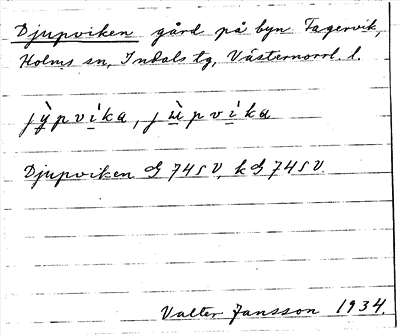 Djupviken gård på byn Fagervik,
Holms sn, Indals tg, Västernorrl. l.
jỳpvika, jùpvika
Djupviken G 74 S V, k G 74 S V.
Valter Jansson 1934.